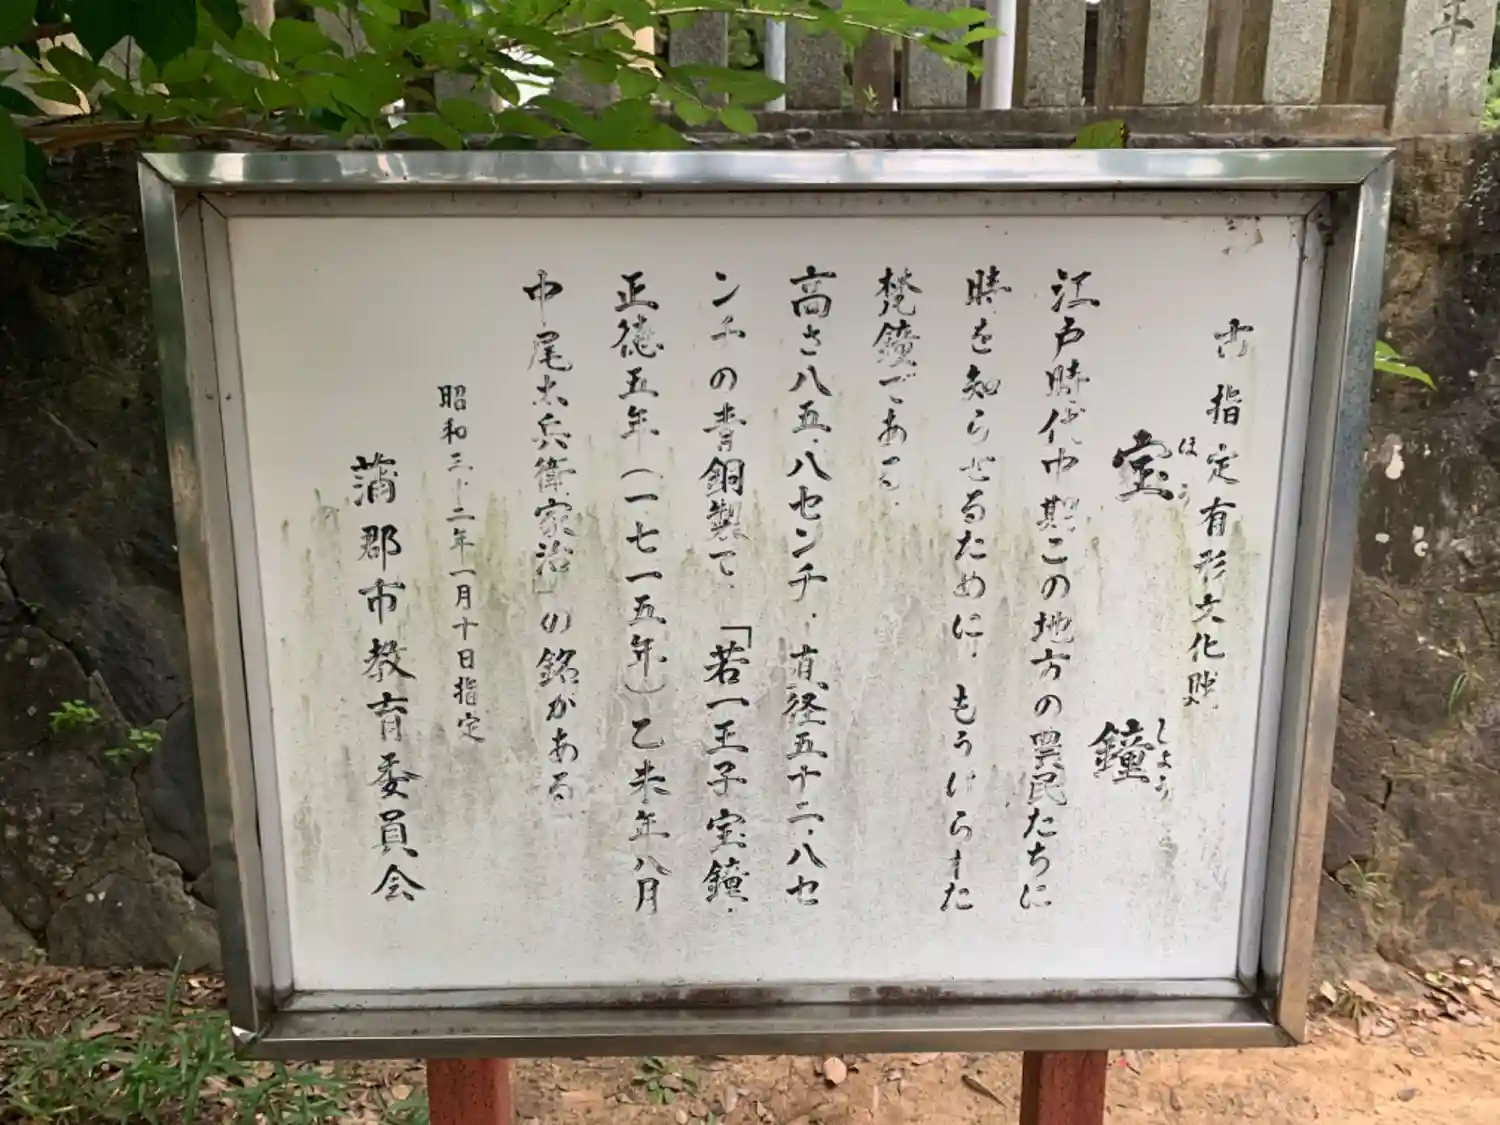 市指定有形文化財
宝鐘
ほう しょう
江戸時代中期この地方の農民たちに
時を知らせるために、もうけられた
梵鐘である。
高さ八五・八センチ、直径五十二・八セ
ンチの青銅製で、「若一王子宝鐘、
正徳五年(一七一五年)乙未年八月
中尾太兵衛家治」の銘がある
昭和三十二年一月十日指定
蒲郡市教育委員会